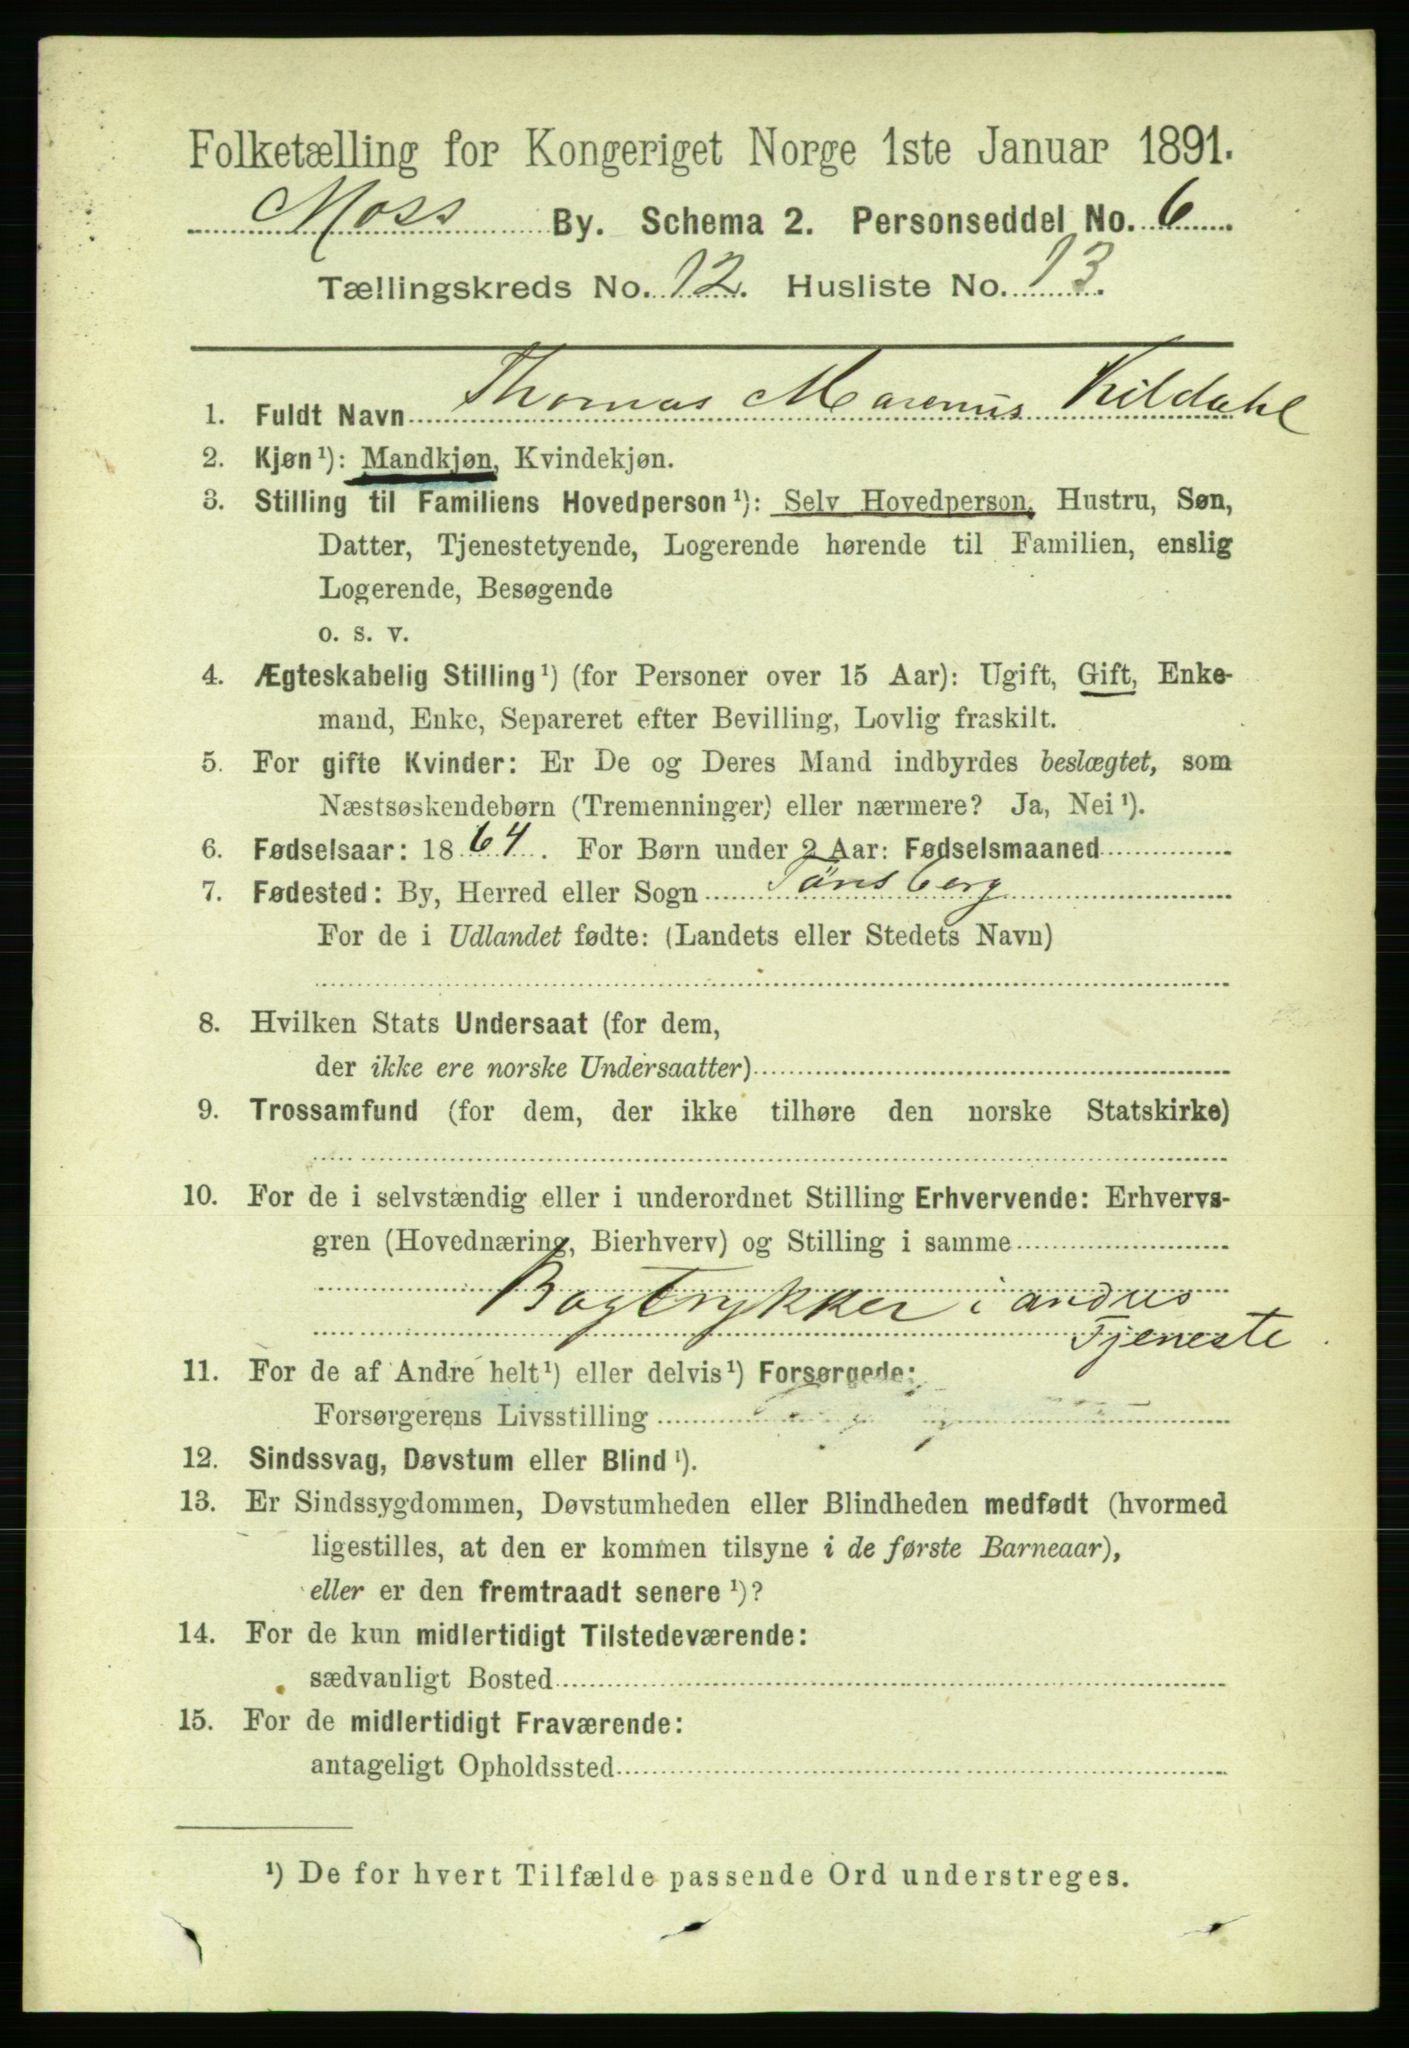 Folketælling for Kongeriget Norge 1ste Januar 1891.
Moss By. Schema 2. Personseddel No. 6
Tællingskreds No. 12. Husliste No. 13.
1. Fuldt Navn Thomas Marenus Kildahl
2. Kjøn¹): Mandkjøn, Kvindekjøn.
3. Stilling til Familiens Hovedperson¹): Selv Hovedperson, Hustru, Søn,
Datter, Tjenestetyende, Logerende hørende til Familien, enslig
Logerende, Besøgende
o. s. v.
4. Ægteskabelig Stilling¹) (for Personer over 15 Aar): Ugift, Gift, Enke-
mand, Enke, Separeret efter Bevilling, Lovlig fraskilt.
5. For gifte Kvinder: Er De og Deres Mand indbyrdes beslægtet, som
Næstsøskendebørn (Tremenninger) eller nærmere? Ja, Nei¹).
6. Fødselsaar: 1864. For Børn under 2 Aar: Fødselsmaaned
7. Fødested: By, Herred eller Sogn Tönsberg
For de i Udlandet fødte: (Landets eller Stedets Navn)
8. Hvilken Stats Undersaat (for dem,
der ikke ere norske Undersaatter)
9. Trossamfund (for dem, der ikke tilhøre den norske Statskirke)
10. For de i selvstændig eller i underordnet Stilling Erhvervende: Erhvervs-
gren (Hovednæring, Bierhverv) og Stilling i samme
Bogtrykker i andres
Tjeneste
11. For de af Andre helt¹) eller delvis¹) Forsørgede:
Forsørgerens Livsstilling
12. Sindssvag, Døvstum eller Blind¹).
13. Er Sindssygdommen, Døvstumheden eller Blindheden medfødt (hvormed
ligestilles, at den er kommen tilsyne i de første Barneaar),
eller er den fremtraadt senere¹)?
14. For de kun midlertidigt Tilstedeværende:
sædvanligt Bosted
15. For de midlertidigt Fraværende:
antageligt Opholdssted
¹) De for hvert Tilfælde passende Ord understreges.